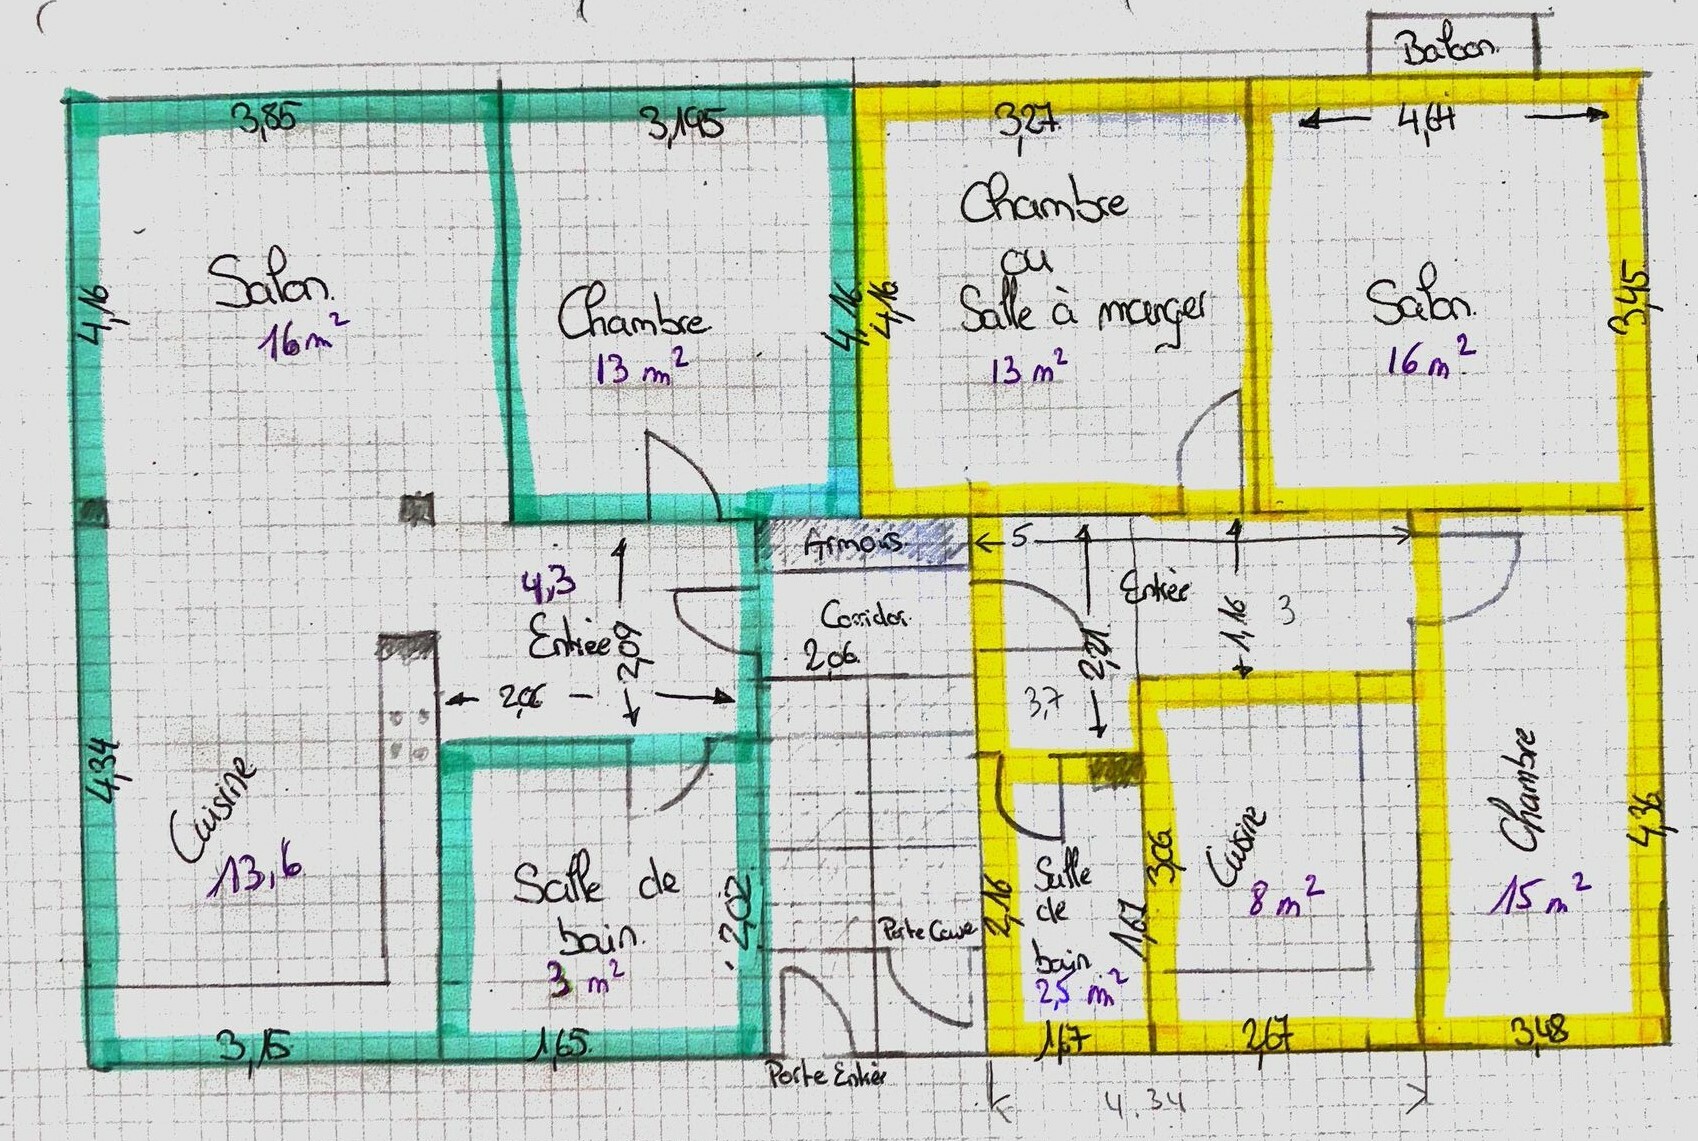 Balcon
3,85
3,195
3,27
4,64
Chambre
ou
Salle à manger
13 m²
4,16
Salon.
16 m²
Chambre
13 m²
4,16
4,16
Salon.
16 m²
3,45
Armoire
5
4,3
Entrée
2,09
2,06
Corridor.
2,06
Entrée
1,16
3
2,21
3,7
4,34
Cuisine
13,6
Salle de
bain.
3 m²
2,02
Porte Cave
2,16
Salle
de
bain
2,5 m²
1,67
3,06
Cuisine
8 m²
Chambre
15 m²
4,36
3,15
1,65
Porte Entrée
1,67
2,67
3,48
4.34